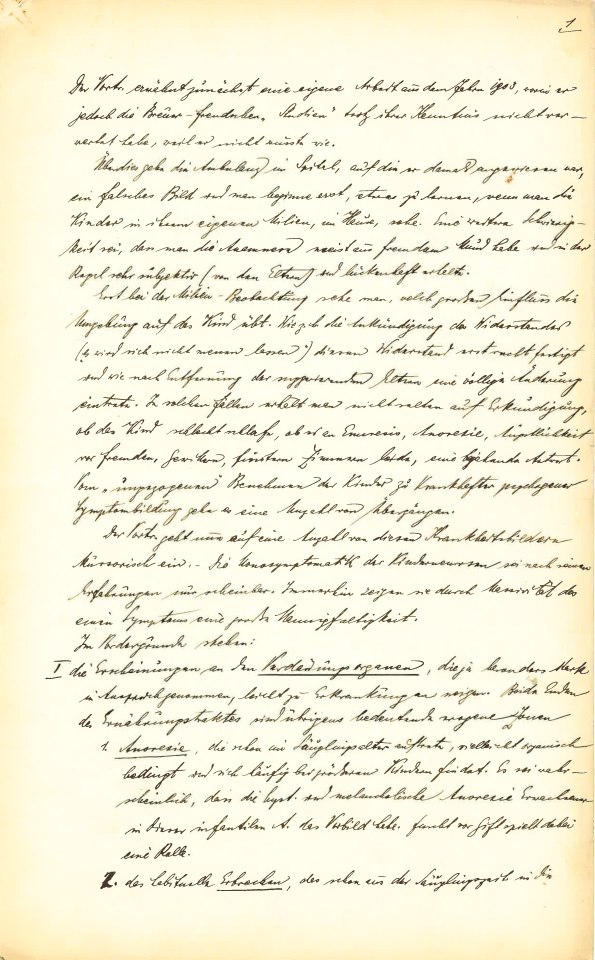 1
Der Vortr. erwähnt zunächst eine eigene Arbeit aus dem Jahre 1903, worin er
jedoch die Breuer-Freudschen „Studien" trotz ihrer Kenntnis nicht ver-
wertet habe, weil er nicht wusste wie.
Überdies gebe die Ambulanz im Spital, auf die er damals angewiesen war,
ein falsches Bild und man beginne erst, etwas zu lernen, wenn man die
Kinder in ihrem eigenen Milieu, im Hause, sehe. Eine weitere Schwierig-
keit sei, dass man die Anamnese meist aus fremdem Mund habe und in der
Regel sehr subjektiv (von den Eltern) und lückenhaft erhelte.
Erst bei der Milieu-Beobachtung sehe man, welch großen Einfluss die
Umgebung auf das Kind übt. Wie z.b. die Ankündigung des Widerstandes
(„er wird sich nicht messen lassen") diesen Widerstand erst recht fertigt
und wie nach Entfernung der suggerierenden Eltern eine völlige Änderung
eintrete. In solchen Fällen erhelt man nicht selten auf Erkundigung,
ob das Kind schlecht schlafe, ob es an Enuresis, Anorexie, Ängstlichkeit
vor fremden Gesichtern, finsteren Zimmern leide, eine bejahende Antwort.
Vom „ungezogenen" Benehmen der Kinder zu krankhafter psychogener
Symptombildung gebe es eine Anzahl von Übergängen.
Der Vortr. geht nun auf eine Anzahl von diesen Krankheitsbildern
kursorisch ein. - Die Monosymptomatik der Kinderneurosen sei nach seinen
Erfahrungen nur scheinbar. Immerhin zeigen sie durch Massivität des
einen Symptoms eine große Mannigfaltigkeit.
Im Vordergrunde stehen:
I die Erscheinungen an den Verdauungsorganen, die ja besonders stark
in Anspruch genommen, leicht zu Erkrankungen neigen. Beide Enden
des Ernährungstraktes sind übrigens bedeutende erogene Zonen
1. Anorexie, die schon im Säuglingsalter auftrete, vielleicht organisch
bedingt und sich häufig bei größeren Kindern findet. Es sei wahr-
scheinlich, dass die hyst. und melancholische Anorexie Erwachsener
in dieser infantilen A. das Vorbild habe. Furcht vor Gift spielt dabei
eine Rolle.
2. das habituelle Erbrechen, das schon aus der Säuglingszeit in die